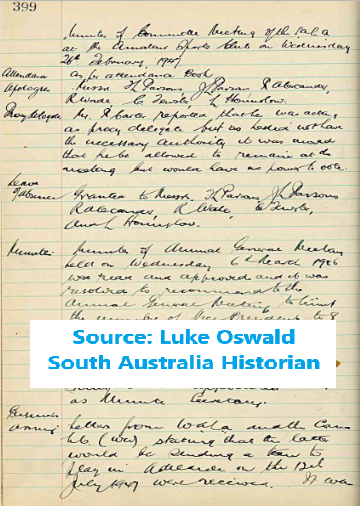 399
Minutes of Committee Meeting of the S.A.L.A
at the Amateur Sports Club on Wednesday
26th February, 1947
Attendance as per attendance Book
Apologies Messrs F L Parsons J L Parsons R Alexander,
R Wade, C Fewster, L Hounslow.
Proxy Delegate Mr. R Carter reported that he was acting
as proxy delegate but as he had not
the necessary authority it was moved
that he be allowed to remain at the
meeting but would have no power to vote.
Leave
of absence Granted to Messrs. F L Parsons J L Parsons
R Alexander R Wade, C Fewster,
and L Hounslow.
Minutes Minutes of Annual General Meeting
held on Wednesday 6th March 1946
was read and approved and it was
resolved to recommend to the
Annual General Meeting to limit
the number of Vice Presidents to 8
Source: Luke Oswald
South Australia Historian
as Minute Secretary.
Business
arising Letters from W.A.L.A and the
stating that the latter
would be sending a team to
play in Adelaide on the 12th
July 1947 were received. It was